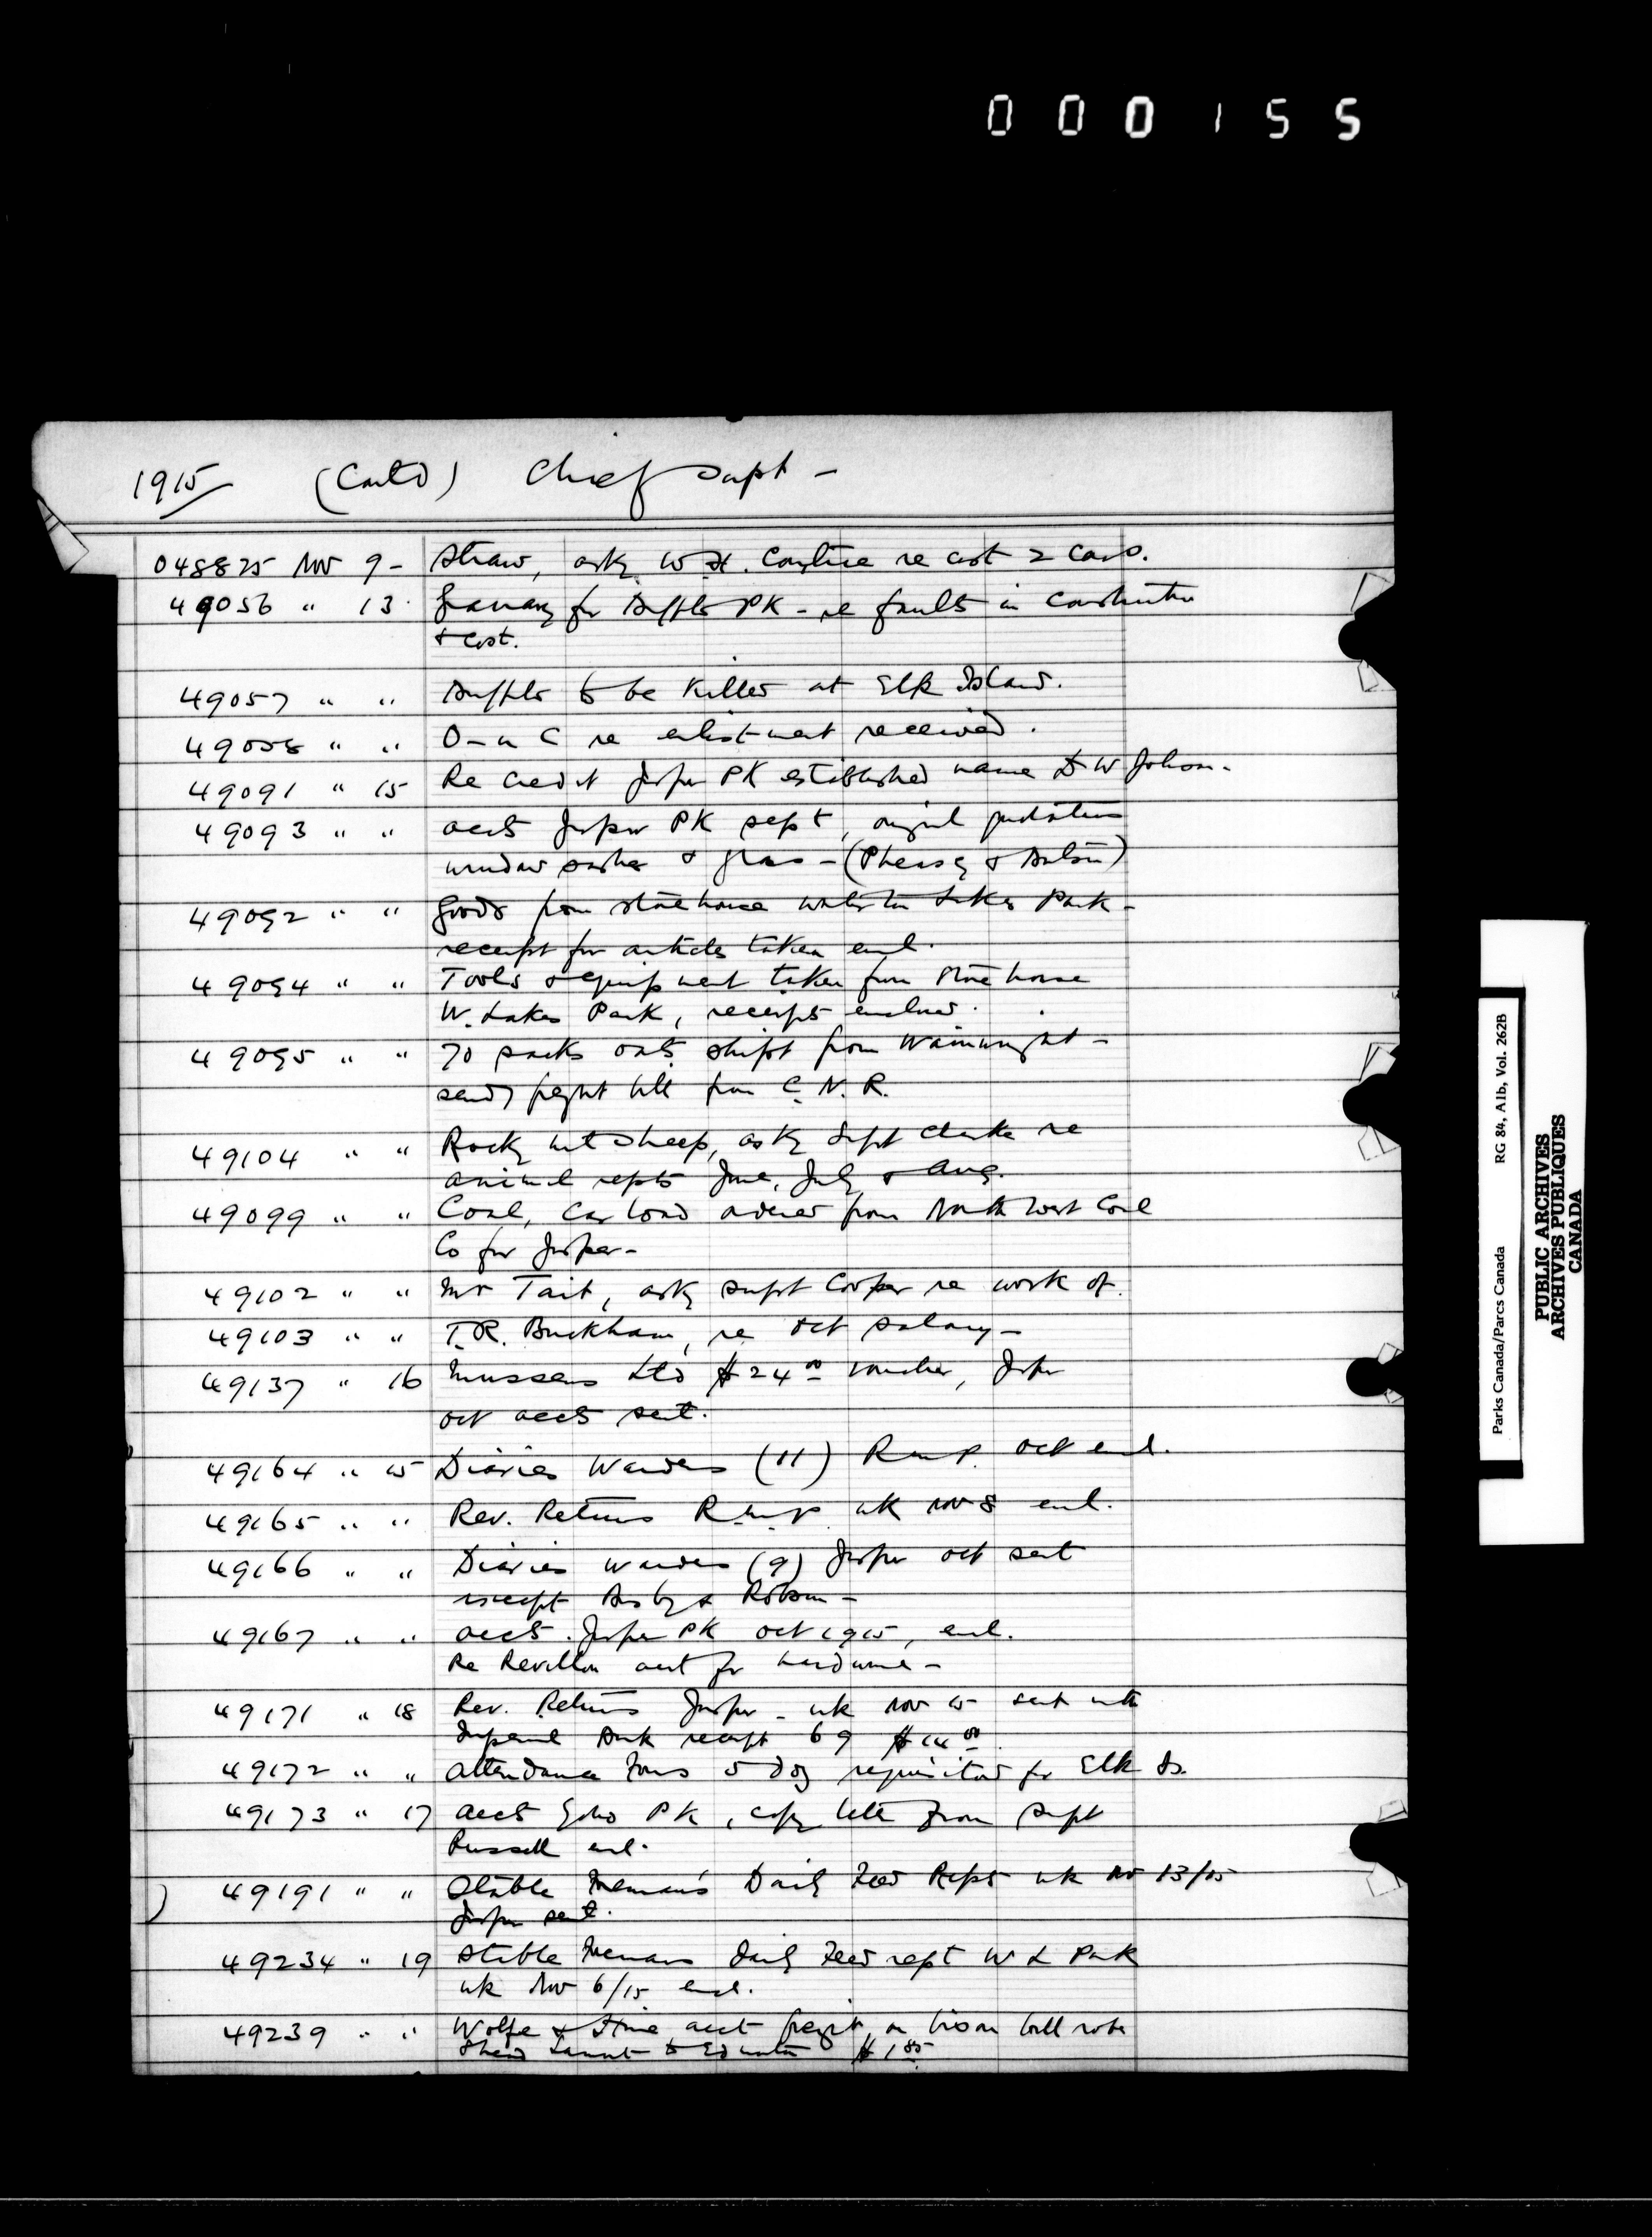 000155
1915 (Contd) Chief Supt -
048825 Nov 9 - Straw, askg W H. re cost 2 cars.
49056 " 13 Granary for Buffalo PK - re faults in Construction
& cost.
49057 " " Buffalo to be killed at Elk Island.
49058 " " O-in C re enlistment received.
49091 " 15 Re credit Jasper PK established name D W Johson -
49093 " " accts Jasper PK Sept, original quotations
window sashes & glass - (Pheasey & Batson)
49092 " " Goods from storehouse Waterton Lakes Park -
receipt for articles taken encl.
49094 " " Tools & equipment taken from Storehouse
W. Lakes Park, receipts enclosed.
49095 " " 70 sacks oats shipt from Wainwright -
sendg freight bill from C. N. R.
49104 " " Rocky mt sheep, askg Supt Clarke re
animal repts June, July & Aug.
49099 " " Coal, car load ordered from North West Coal
Co for Jasper -
49102 " " Mr Tait, askg supt Cooper re work of.
49103 " " T.R. Buckham, re Oct salary -
49137 " 16 Mussens Ltd $24.00 voucher, Jasper
oct accts sent.
49164 " 15 Diaries Wardens (11) R.m.P. Oct encl.
49165 " " Rev. Returns R.m.P. wk Nov 8 encl.
49166 " " Diaries Wardens (9) Jasper oct sent
except Busby & Robson -
49167 " " accts. Jasper PK Oct 1915, encl.
Re Revillon acct for hardware -
49171 " 18 Rev. Returns Jasper - wk Nov 15 sent with
Imperial Bank receipt 69 $14.00
49172 " " Attendance forms 5 dog requisitions for Elk Is.
49173 " 17 accts Yoho PK, copy letter from Supt
Russell encl.
49191 " " Stable Foreman's Daily Feed Repts wk Nov 13/15
Jasper sent.
49234 " 19 Stable Foremans Daily Feed rept W L Park
wk Nov 6/15 encl.
49239 " " Wolfe & Hine acct freight on bison bull robe
$1.85
Parks Canada/Parcs Canada RG 84, Alb, Vol. 262B
PUBLIC ARCHIVES
ARCHIVES PUBLIQUES
CANADA